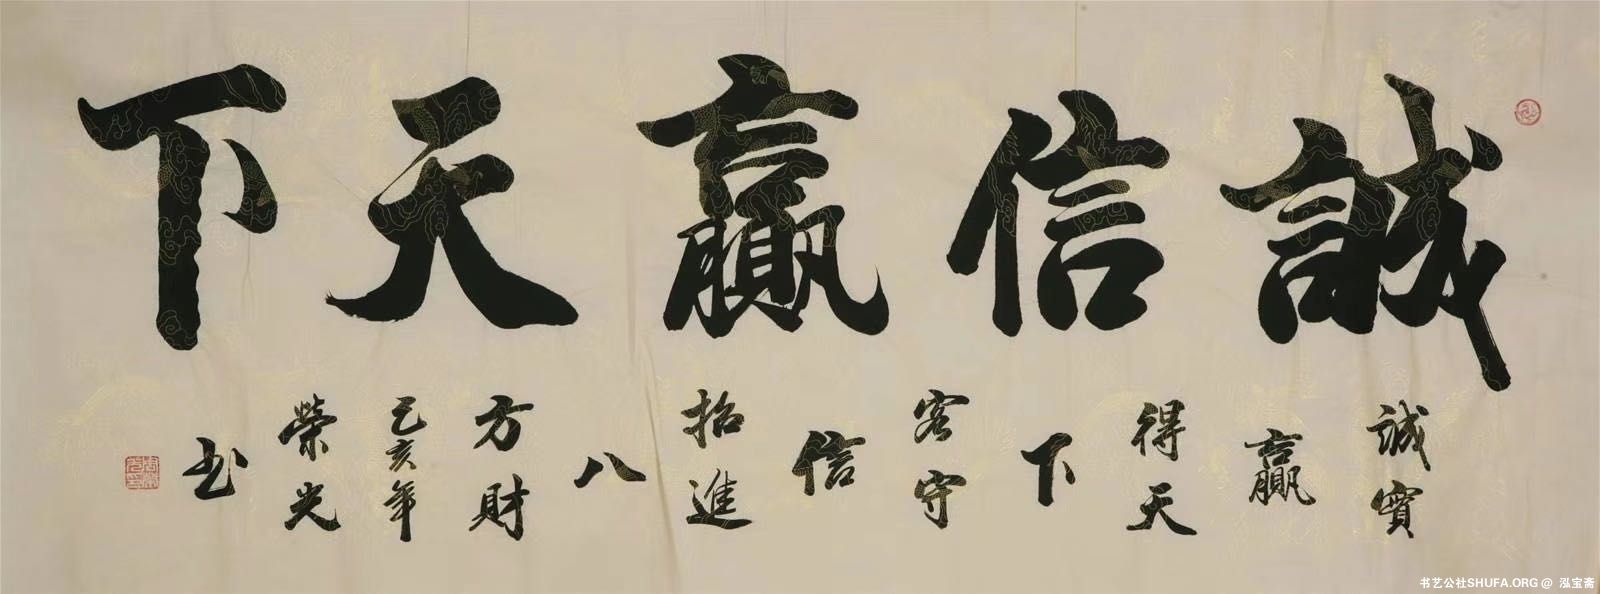 誠信贏天下
誠實
贏
得天
下
客守
信
招進
八
方財
己亥年
榮光
书
书艺公社SHUFA.ORG @ 泓宝斋